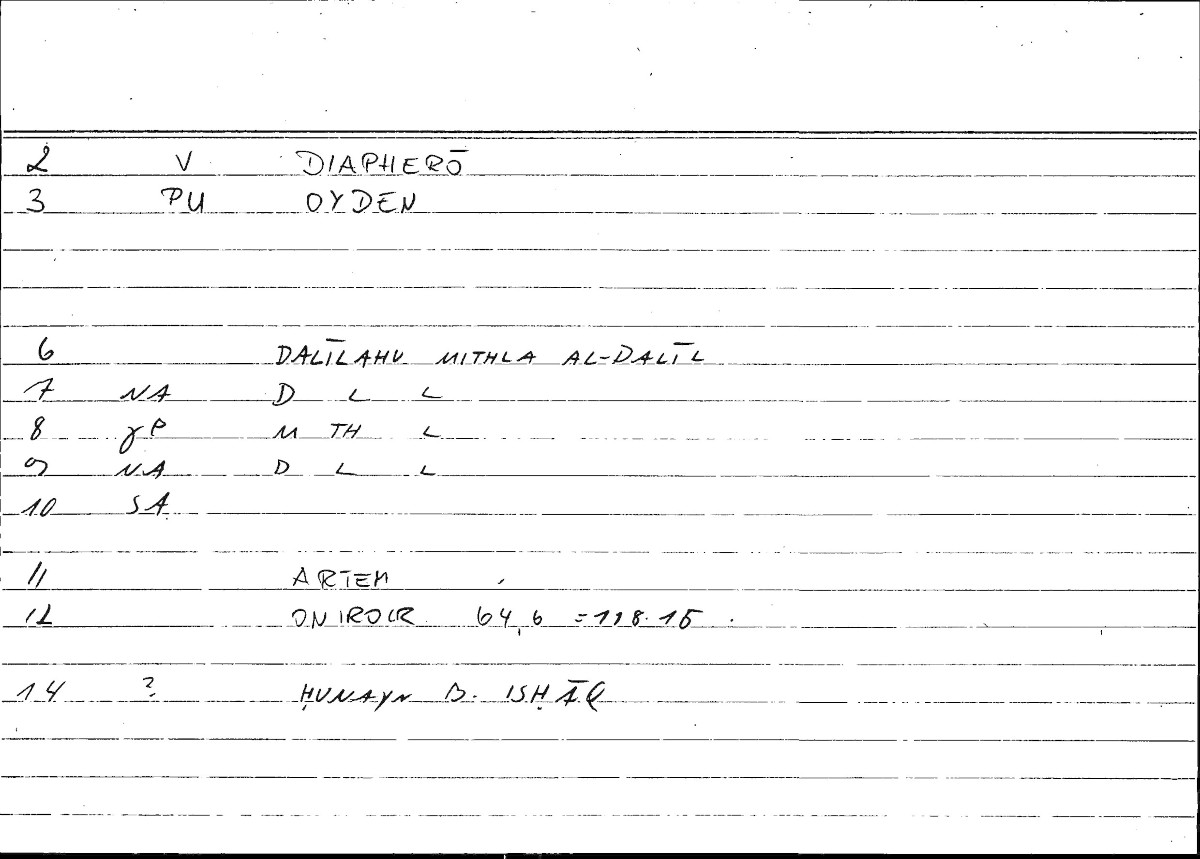 2 V DIAPHERŌ
3 PU OYDEN
6 DALĪLAHU MITHLA AL-DALĪL
7 NA D L L
8 γP M TH L
9 NA D L L
10 SA
11 ARTEM
12 ONIROCR 64,6 =118.15
14 ? ḤUNAYN B. ISḤĀQ